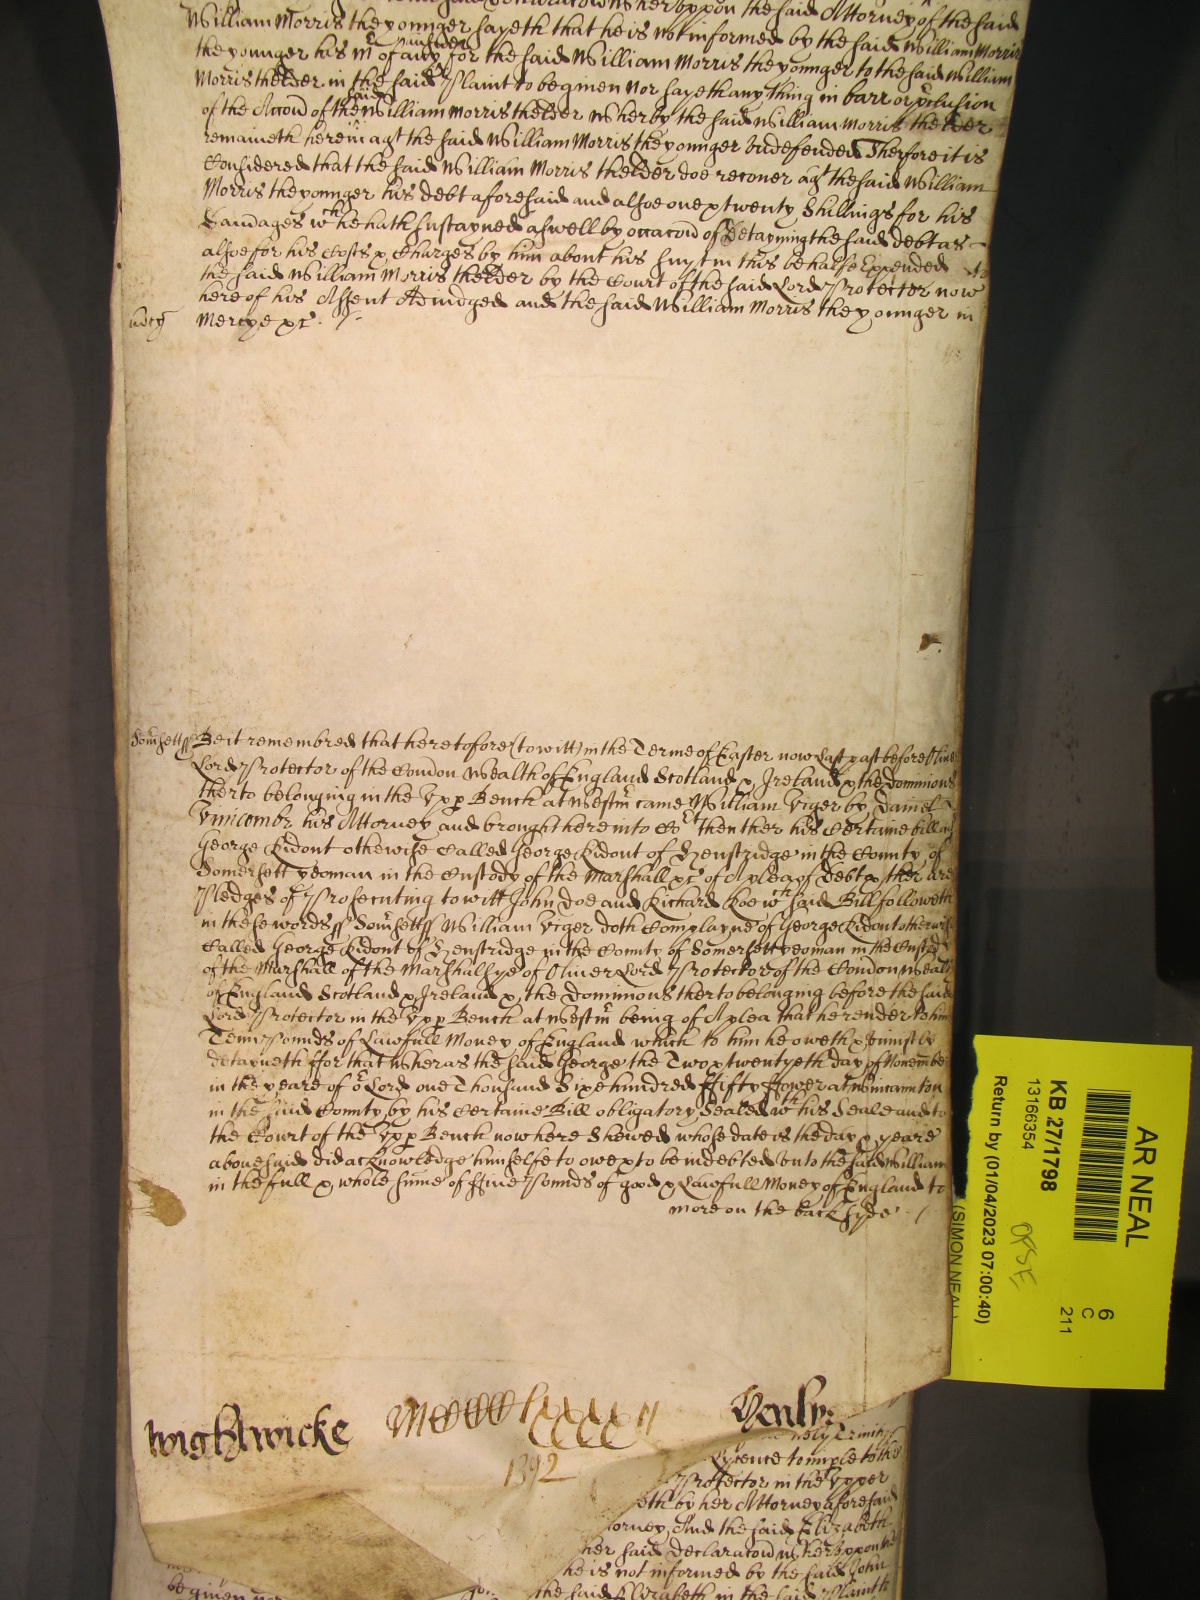 William Morris the younger sayeth that he is not informed by the said William Morris
the younger his mr of any Answer for the said William Morris the younger to the said William
Morris thelder in the said Plaint to be given nor sayeth any thing in barr or pclusion
of the Accon of the said William Morris thelder Wherby the said William Morris thelder
remaineth herein agt the said William Morris the younger undefended Therfore it is
Considered that the said William Morris thelder doe recover agt the said William
Morris the younger his debt aforesaid and alsoe one & twenty Shillings for his
Damages wch he hath sustayned aswell by occacon of Detayning the said debt as
alsoe for his Costs & Charges by him about his suyt in this behalfe Expended to
the said William Morris thelder by the Court of the said Lord Protector now
here of his Assent Adiudged and the said William Morris the younger in
mercy
Mercye &c.
Somsett ss Be it remembred that heretofore (to witt) in the Terme of Easter now last past before Oliver
Lord Protector of the Comon Wealth of England Scotland & Ireland & the dominions
therto belonging in the Upp Bench at Westmr came William Viger by Daniel
Unicombe his Attorney and brought here into Cort then ther his Certaine bill agt
George Ridout otherwise Called George Ridout of Henstridge in the County of
Somersett yeoman in the Custody of the Marshall &c of A plea of Debt & ther are
Pledges of Prosecuting to witt John Doe and Richard Roe wch said Bill followeth
in these words ss Somsett ss William Viger doth Complayne of George Ridout otherwise
Called George Ridout of Henstridge in the County of Somersett yeoman in the Custody
of the Marshall of the Marshallsye of Oliver Lord Protector of the Comon Wealth
of England Scotland & Ireland & the Dominions therto belonging before the said
Lord Protector in the Upp Bench at Westmr being of A plea that he render to him
Tenn Pounds of Lawfull Money of England which to him he oweth & Uniustly
detayneth ffor that Wheras the said George the Two & twentyeth day of November
in the yeare of or Lord one Thousand Sixe hundred ffifty ffower at Wincanton
in the said County by his Certaine Bill obligatory Sealed wth his Seale and to
the Court of the Upp Bench now here Shewed whose date is the day & yeare
abovesaid did acknowledge himselfe to owe & to be indebted unto the said William
in the full & whole sume of ffive Pounds of good & Lawfull Money of England to
more on the back syde
Wightwicke
Henly
1392
holy Trinity
Lycence to imple to the
Protector in the Upper
eth by her Attorney aforesaid
torney And the said Elizabeth
her said declaracon wherupon the
he is not informed by the said John
the said Elizabeth in the said Plaint
be given nor
AR NEAL
KB 27/1798
13166354
Return by (01/04/2023 07:00:40)
(SIMON NEAL)
6
C
211